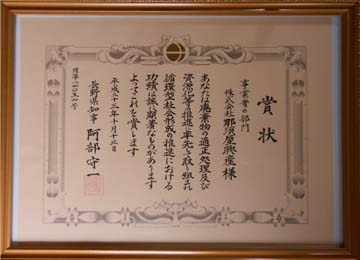 賞状
事業者の部門
株式会社 那須屋興産様
あなたは廃棄物の適正処理及び
資源化等の推進に率先して取り組まれ
循環型社会形成の推進における
功績は誠に顕著なものがあります
よってこれを賞します
平成二十三年十月十三日
長野県知事 阿部守一